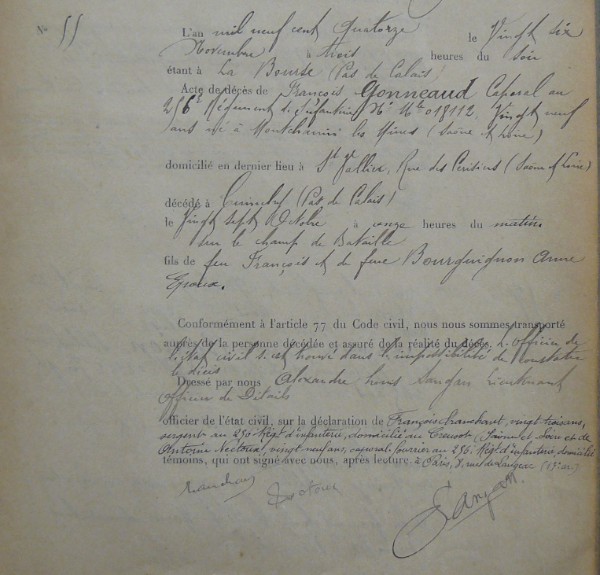 N° 55
L'an mil neuf cent quatorze le Vingt six
Novembre à trois heures du Soir
étant à La Bourse (Pas de Calais)
Acte de décès de François Gonneaud Caporal au
256e Régiment d'Infanterie N° Mle 018112, Vingt neuf
ans né à Montchanin les Mines (Saône et Loire)
domicilié en dernier lieu à St Vallier, Rue des (Saône et Loire)
décédé à (Pas de Calais)
le Vingt sept Octobre à onze heures du matin
sur le champ de Bataille
fils de feu François et de feue Bourguignon Anne
Epoux.
Conformément à l'article 77 du Code civil, nous nous sommes transporté
auprès de la personne décédée et assuré de la réalité du décès. L'officier de
l'état civil s'est trouvé dans l'impossibilité de constater
le décès
Dressé par nous Alexandre Lieutenant
Officier de Détails
officier de l'état civil, sur la déclaration de François vingt trois ans,
sergent au 256 Régt d'infanterie, domicilié au Creusot (Saône et Loire) et de
Antoine Nectoux, vingt-neuf ans, caporal fourrier au 256e Régt d'infanterie, domicilié
témoins, qui ont signé avec nous, après lecture. à Paris, 8, rue de
Nectoux